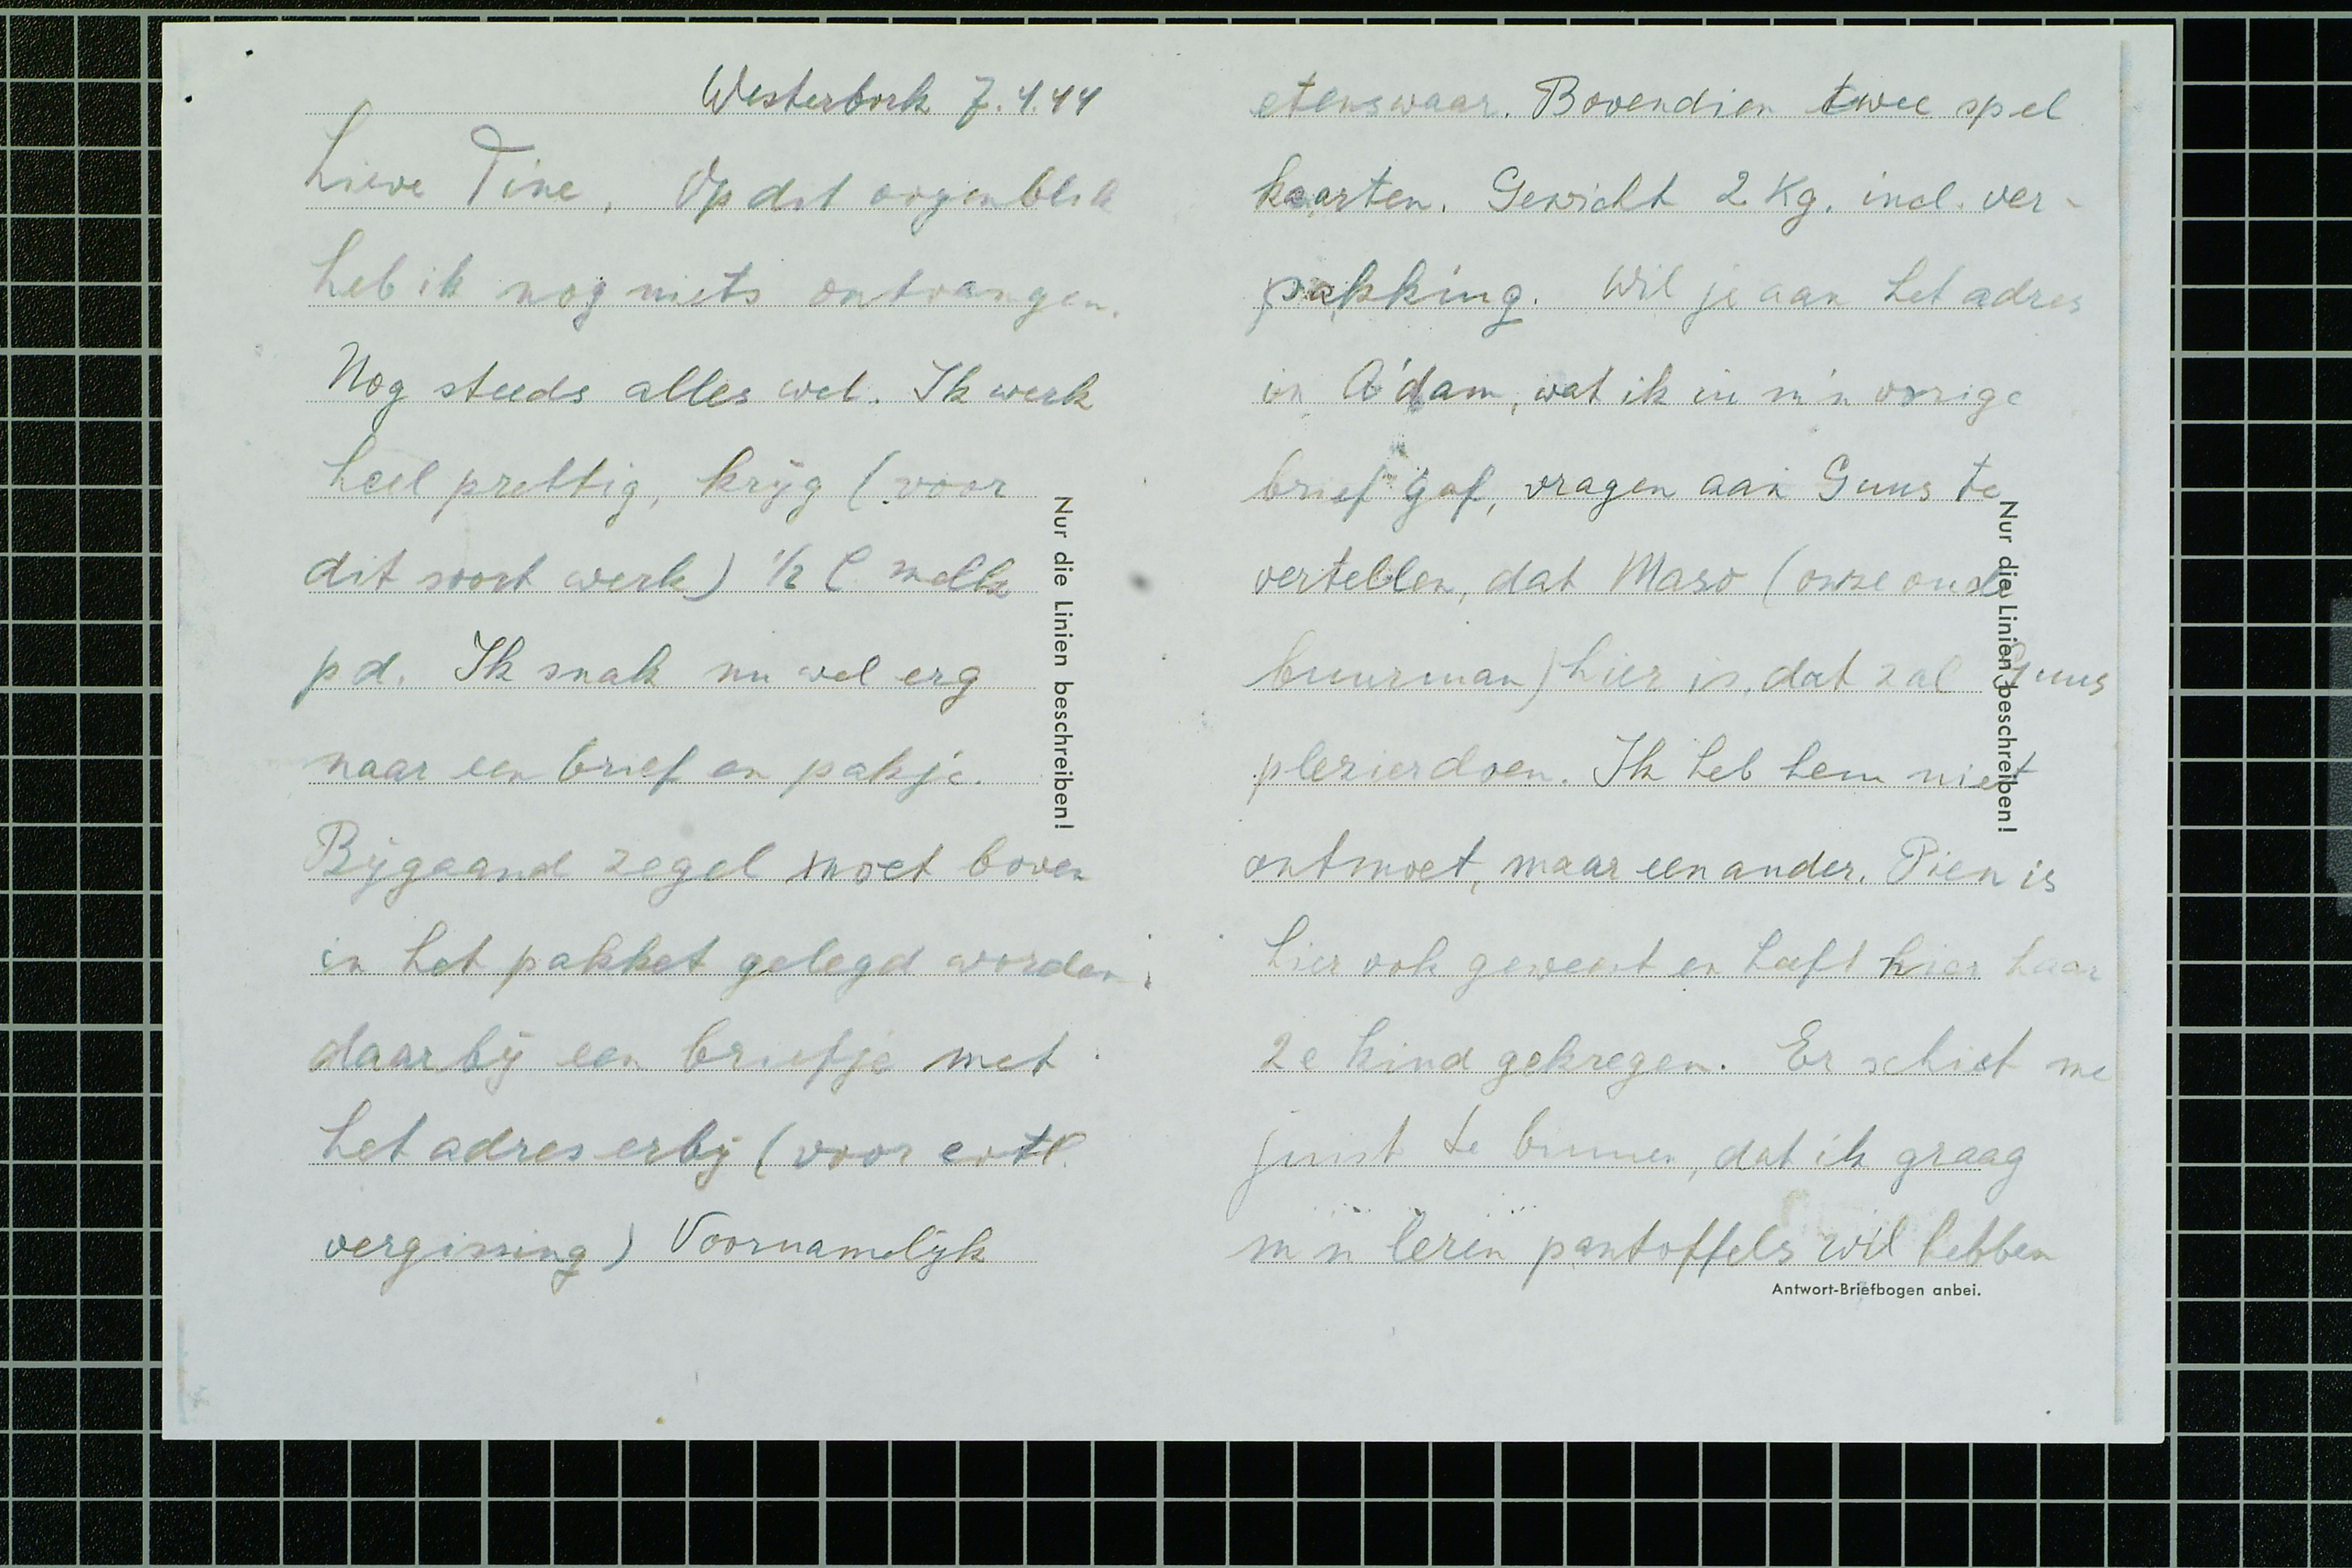 Westerbork 7.4.44
Lieve Tine, Op dit oogenblik
heb ik nog niets ontvangen.
Nog steeds alles wel. Ik werk
heel prettig, krijg (voor
dit soort werk) 1/2 l melk
pd. Ik snak nu wel erg
naar een brief en pakje.
Bijgaand zegel moet boven
in het pakket gelegd worden,
daarbij een briefje met
het adres erbij (voor evtl.
vergissing) Voornamelijk
Nur die Linien beschreiben!
etenswaar. Bovendien twee spel
kaarten. Gewicht 2 Kg. incl. ver-
pakking. Wil je aan het adres
in A'dam, wat ik in m'n vorige
brief gaf, vragen aan Guus te
vertellen, dat Maso (onze oude
buurman) hier is, dat zal Guus
plezierdoen. Ik heb hem niet
ontmoet, maar een ander. Pien is
hier ook geweest en heeft hier haar
2e kind gekregen. Er schiet me
juist te binnen, dat ik graag
m'n leren pantoffels wil hebben
Nur die Linien beschreiben!
Antwort-Briefbogen anbei.